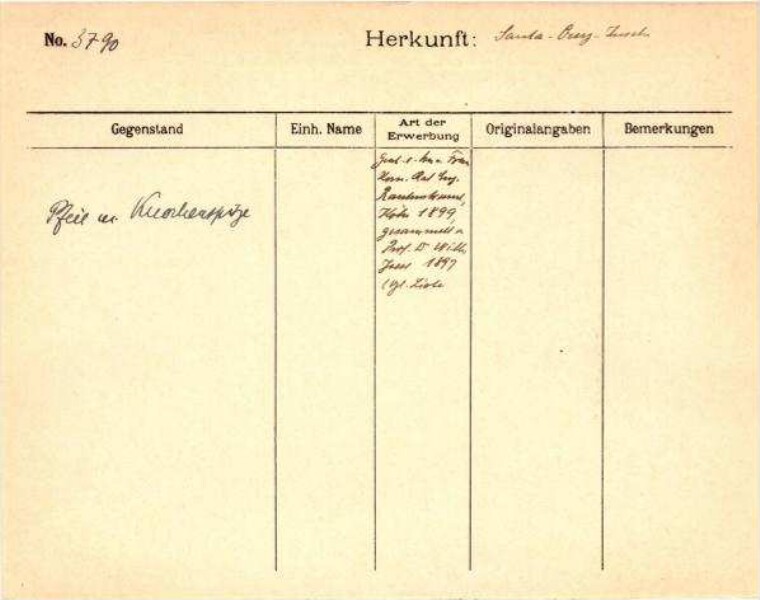 No. 3790
Herkunft: Santa-Cruz-Inseln
Gegenstand
Einh. Name
Art der Erwerbung
Originalangaben
Bemerkungen
Pfeil m. Knochenspitze
Frau
Köln 1899,
gesammelt v.
Prof. D. Wilh.
Joest 1897
(vgl. Liste